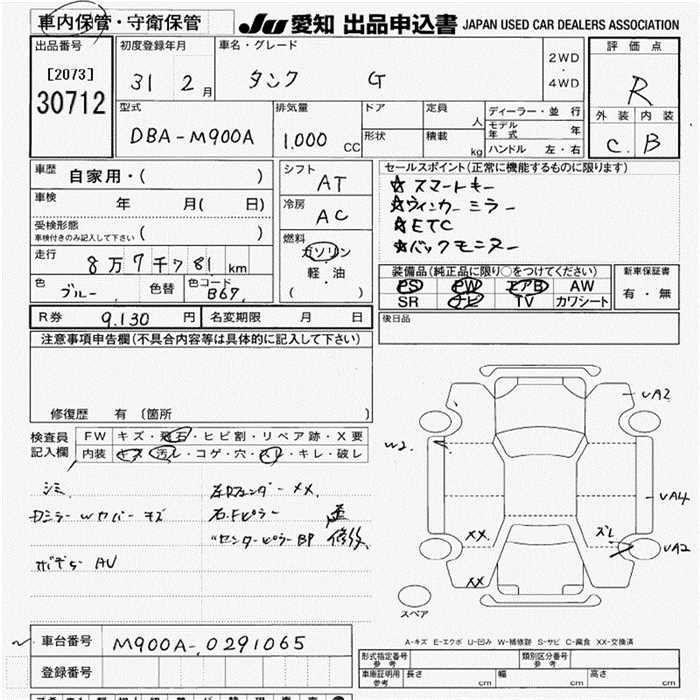 車内保管・守衛保管 JU 愛知 出品申込書 JAPAN USED CAR DEALERS ASSOCIATION
出品番号 [2073] 30712
初度登録年月 31 2月
車名・グレード タンク G
2WD・4WD
評価点 R
外装 C 内装 B
型式 DBA-M900A
排気量 1.000 CC
ドア 形状
定員 人 積載 kg
ディーラー・並行
モデル年式 年
ハンドル 左・右
車歴 自家用・( )
車検 年 月( 日)
受検形態 車検付きのみ記入して下さい ( )
走行 8万7千781 km
色 ブルー 色替 色コード B69
シフト AT
冷房 AC
燃料 ガソリン 軽・油 ( )
セールスポイント(正常に機能するものに限ります)
☆スマートキー
☆ウィンカーミラー
☆ETC
☆バックモニター
装備品(純正品に限り○をつけてください)
PS PW エアB AW
SR ナビ TV カワシート
新車保証書 有・無
後日品
R券 9.130 円 名変期限 月 日
注意事項申告欄(不具合内容等は具体的に記入して下さい)
修復歴 有 〔箇所 〕
検査員記入欄
FW キズ・飛石・ヒビ割・リペア跡・X要
内装 キズ・汚レ・コゲ・穴・スレ・キレ・破レ
シミ
ミラーWカバーキズ
ボデー AU
左Rフェンダー XX
右Fピラー
〃センターピラーBP 修後
UA2
W2
UA4
XX
ズレ
UA2
XX
スペア
A-キズ E-エクボ U-凹み W-補修跡 S-サビ C-腐食 XX-交換済
車台番号 M900A-0291065
登録番号
型式指定番号 参考
類別区分番号 参考
車庫証明用 参考 長さ cm 幅 cm 高さ cm